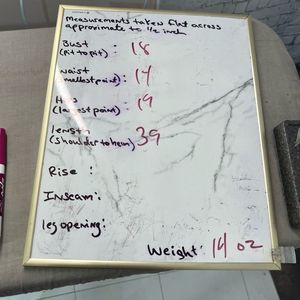 Measurements taken flat across
approximate to 1/2 inch
Bust : 18
(Pit to Pit)
waist : 14
(smallest point)
Hip : 19
(largest point)
length : 39
(shoulder to hem)
Rise :
Inseam :
leg opening :
Weight : 14 oz